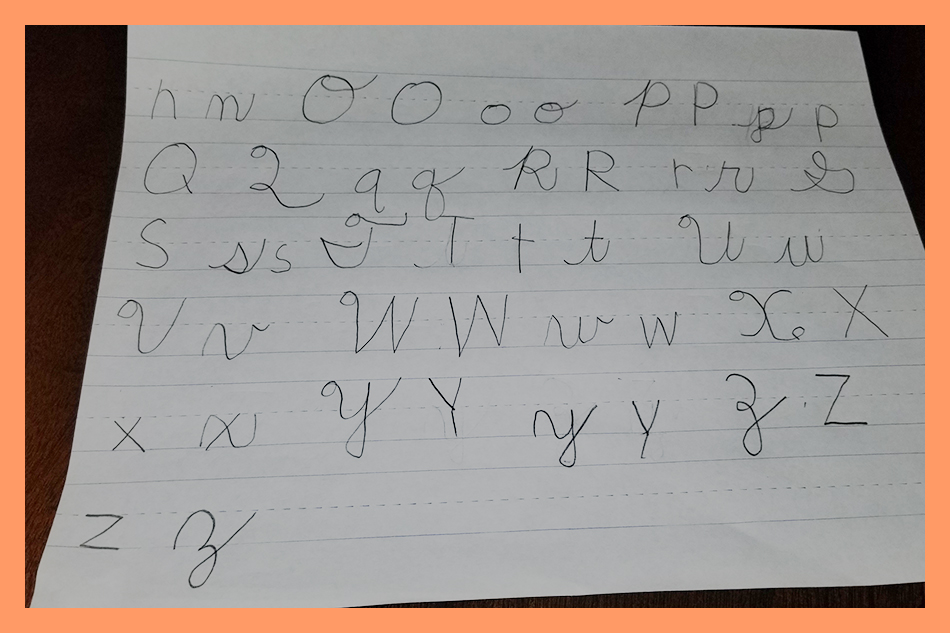 n n O O o o P P p p
Q Q q q R R r r S
S s s T T t t U u
V v W W w w X X
x x Y Y y y Z Z
z z